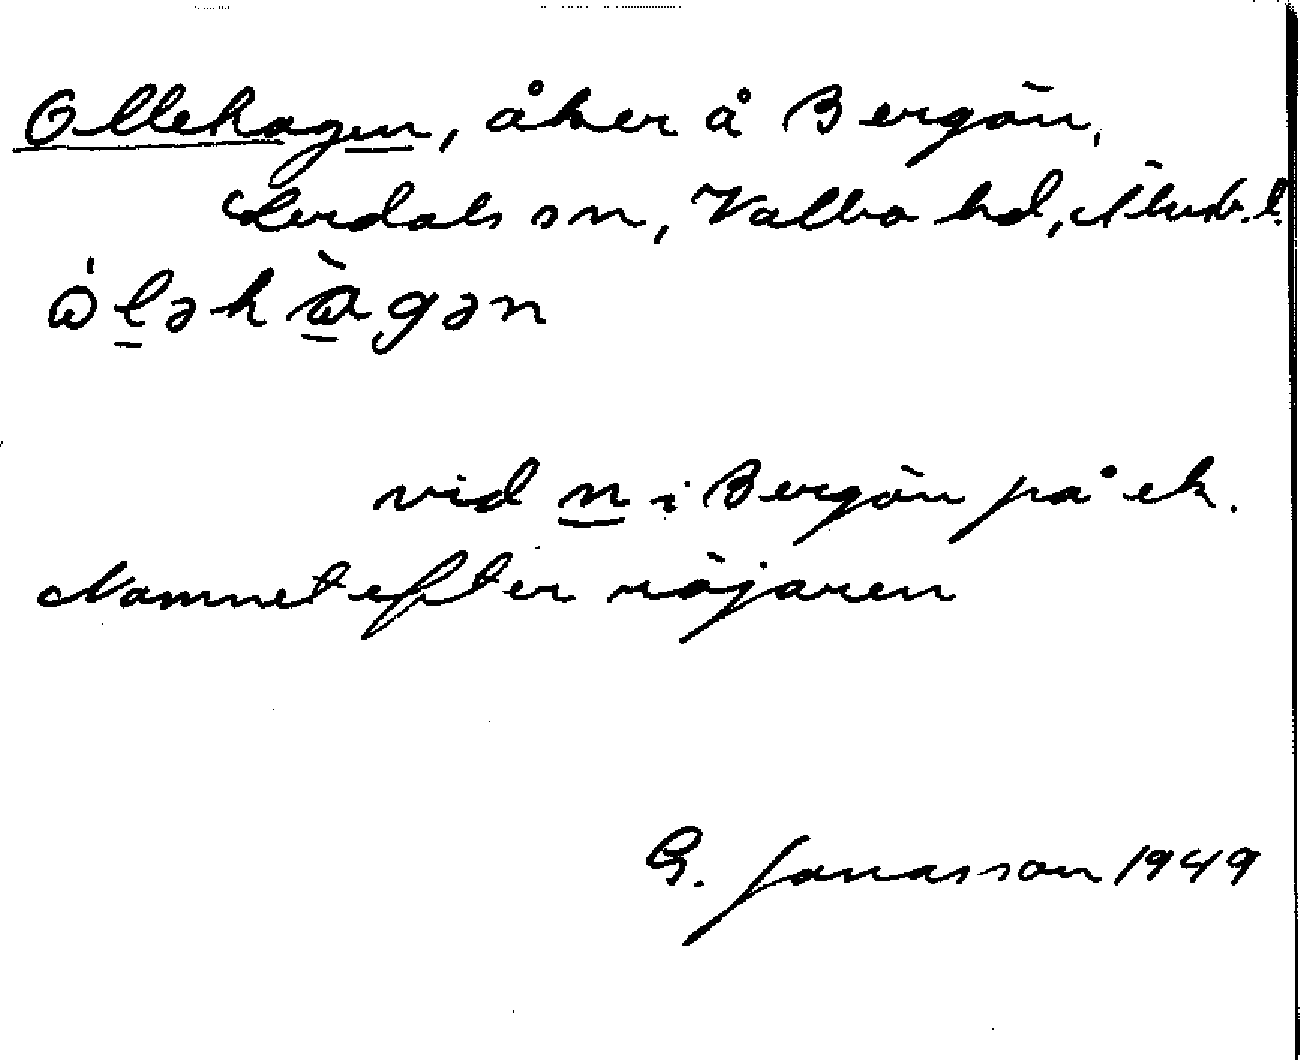 Ollehagen, åker å Bergän,
Lerdals sn, Valbo hd, Älvsb. l.
vid n i Bergän på ek.
Namnet efter röjaren
G. Jonasson 1949